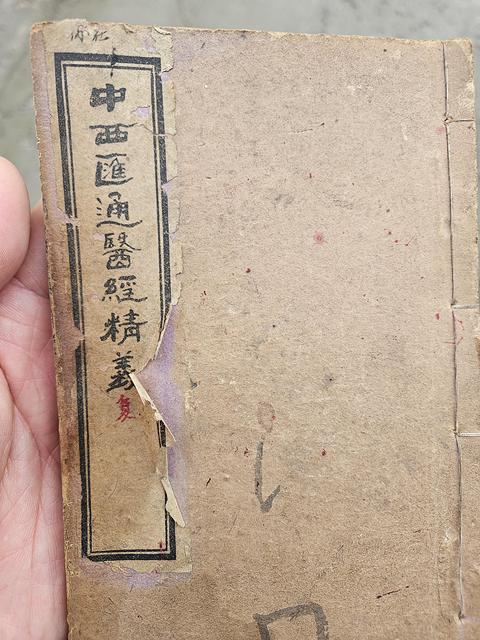 中西匯通醫經精義